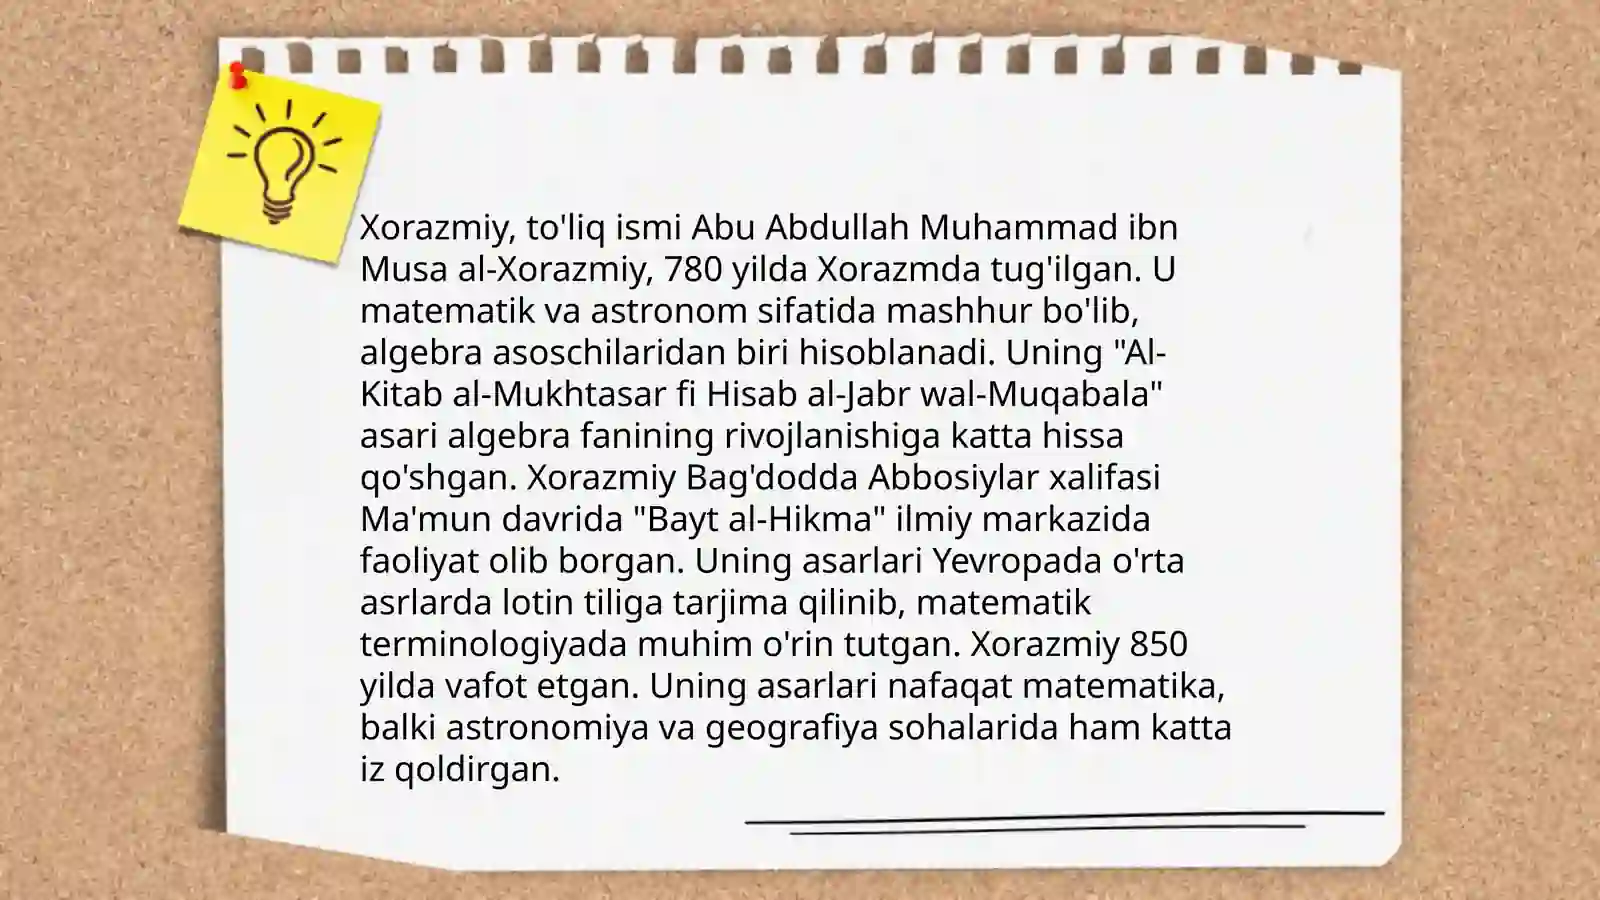 Xorazmiy, to'liq ismi Abu Abdullah Muhammad ibn
Musa al-Xorazmiy, 780 yilda Xorazmda tug'ilgan. U
matematik va astronom sifatida mashhur bo'lib,
algebra asoschilaridan biri hisoblanadi. Uning "Al-
Kitab al-Mukhtasar fi Hisab al-Jabr wal-Muqabala"
asari algebra fanining rivojlanishiga katta hissa
qo'shgan. Xorazmiy Bag'dodda Abbosiylar xalifasi
Ma'mun davrida "Bayt al-Hikma" ilmiy markazida
faoliyat olib borgan. Uning asarlari Yevropada o'rta
asrlarda lotin tiliga tarjima qilinib, matematik
terminologiyada muhim o'rin tutgan. Xorazmiy 850
yilda vafot etgan. Uning asarlari nafaqat matematika,
balki astronomiya va geografiya sohalarida ham katta
iz qoldirgan.